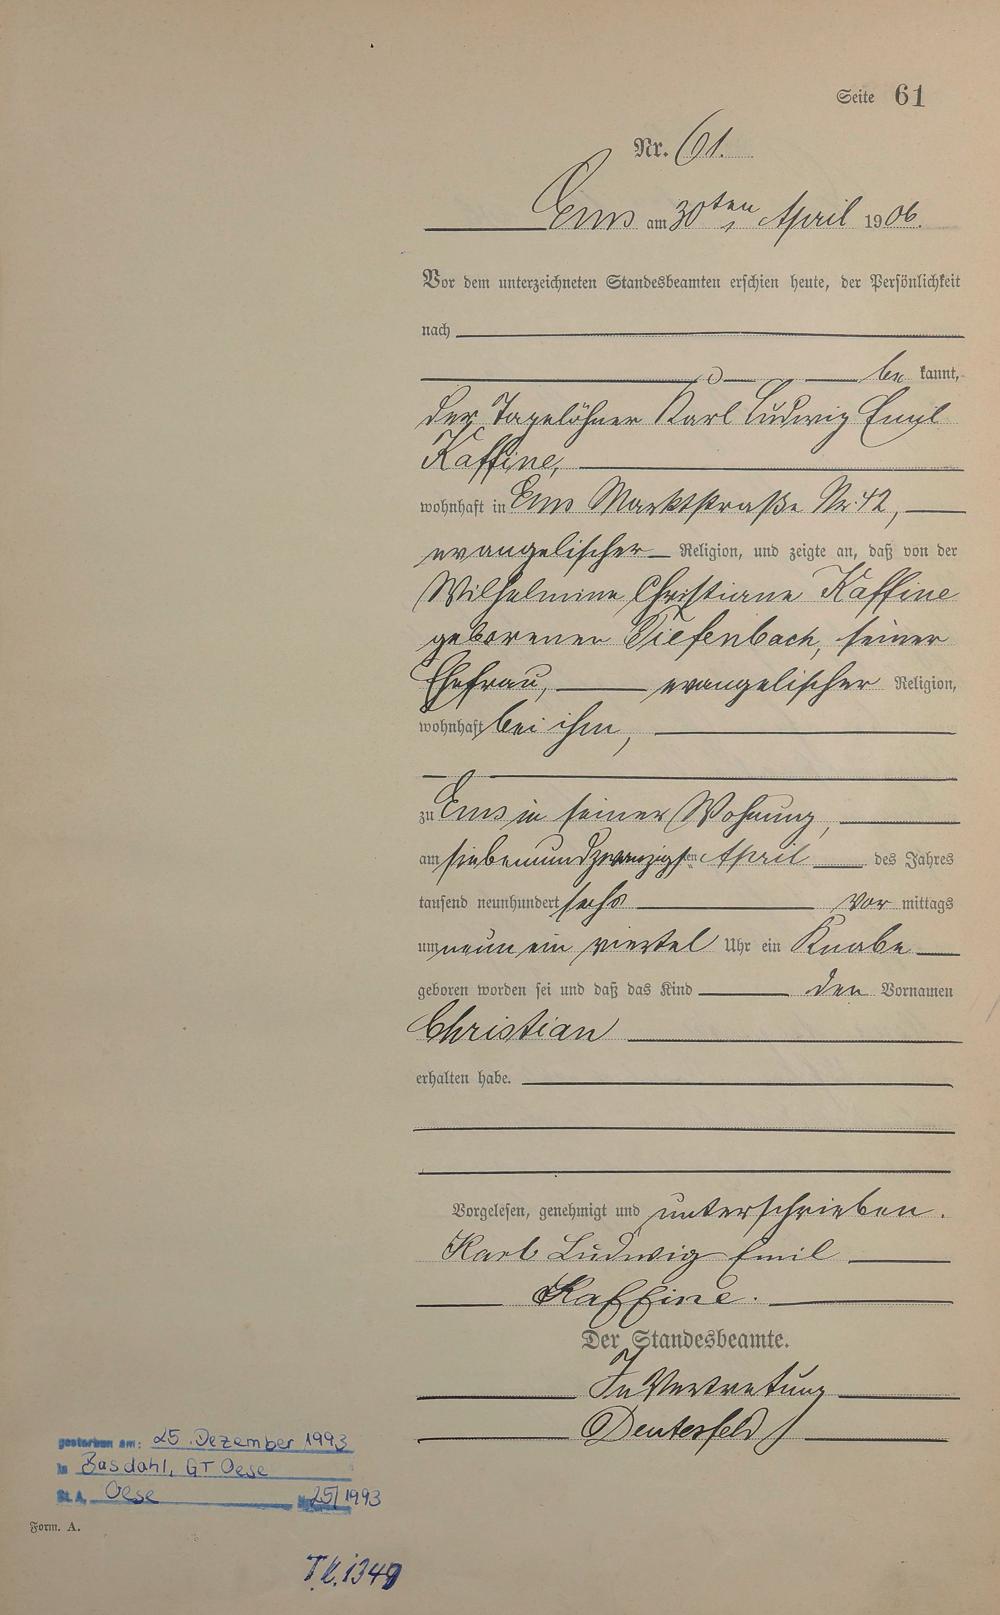 Seite 61
Nr. 61.
Ems am 30ten April 1906.
Vor dem unterzeichneten Standesbeamten erschien heute, der Persönlichkeit
nach
be kannt,
der Tagelöhner Karl Ludwig Emil
Kaffine,
wohnhaft in Ems Marktstraße Nr. 42,
evangelischer Religion, und zeigte an, daß von der
Wilhelmine Christiane Kaffine
geborenen Tiefenbach, seiner
Ehefrau, evangelischer Religion,
wohnhaft bei ihm,
zu Ems in seiner Wohnung,
am siebenundzwanzigsten April des Jahres
tausend neunhundert sechs vor mittags
um neun ein viertel Uhr ein Knabe
geboren worden sei und daß das Kind den Vornamen
Christian
erhalten habe.
Vorgelesen, genehmigt und unterschrieben.
Karl Ludwig Emil
Kaffine.
Der Standesbeamte.
In Vertretung
gestorben am: 25. Dezember 1993
in Basdahl, GT Oese
St. A. Oese 25/1993
Form. A.